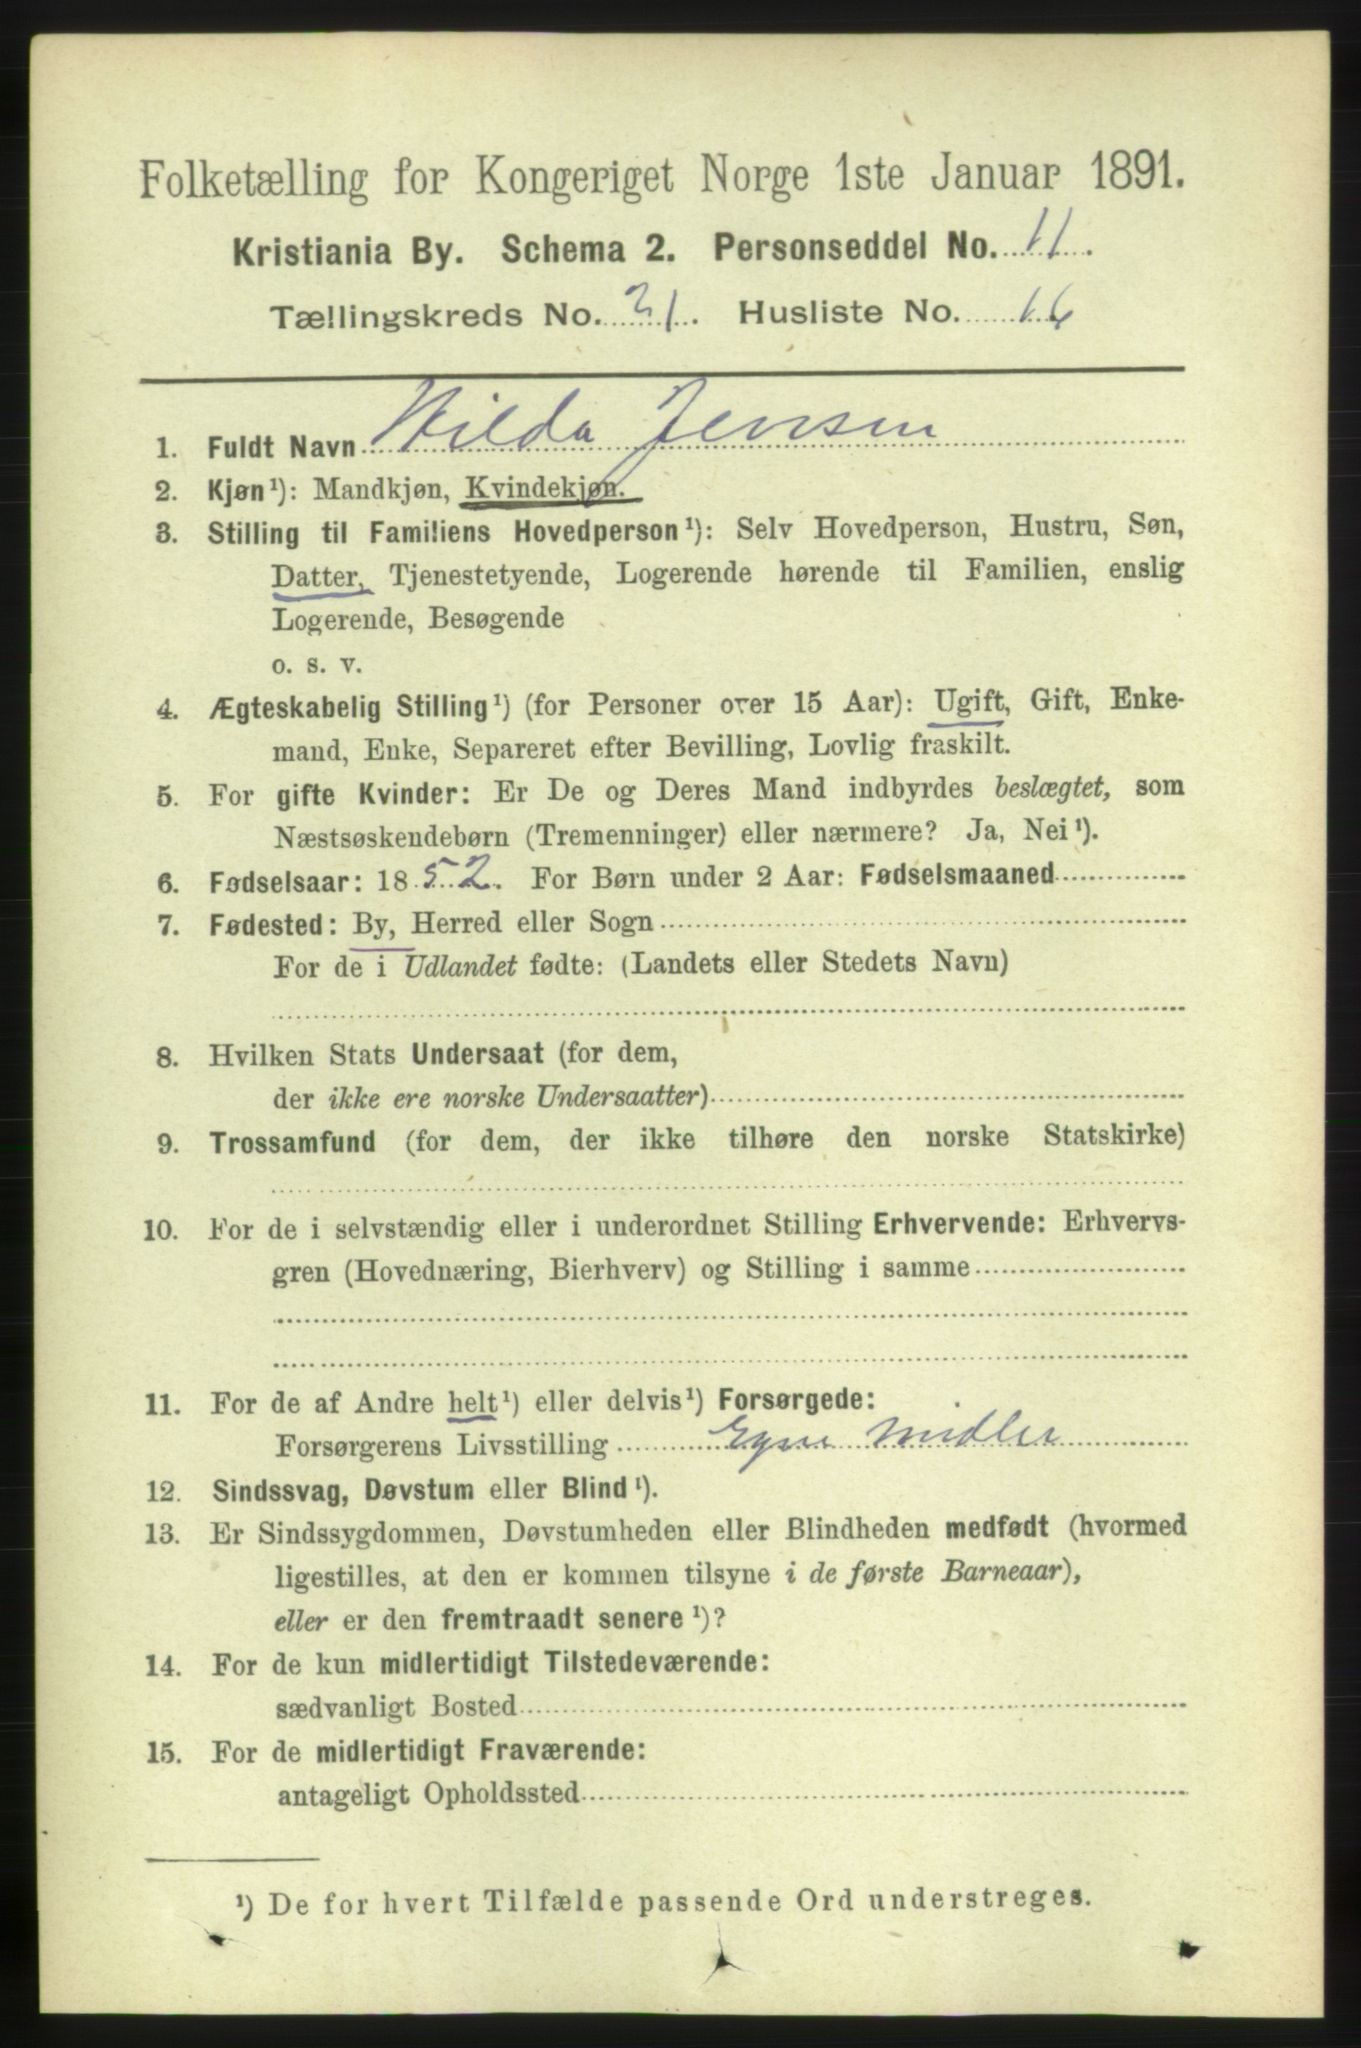 Folketælling for Kongeriget Norge 1ste Januar 1891.
Kristiania By. Schema 2. Personseddel No. 11.
Tællingskreds No. 31. Husliste No. 16
1. Fuldt Navn Hilda Jensen
2. Kjøn¹): Mandkjøn, Kvindekjøn.
3. Stilling til Familiens Hovedperson¹): Selv Hovedperson, Hustru, Søn,
Datter, Tjenestetyende, Logerende hørende til Familien, enslig
Logerende, Besøgende
o. s. v.
4. Ægteskabelig Stilling¹) (for Personer over 15 Aar): Ugift, Gift, Enke-
mand, Enke, Separeret efter Bevilling, Lovlig fraskilt.
5. For gifte Kvinder: Er De og Deres Mand indbyrdes beslægtet, som
Næstsøskendebørn (Tremenninger) eller nærmere? Ja, Nei¹).
6. Fødselsaar: 1852. For Børn under 2 Aar: Fødselsmaaned
7. Fødested: By, Herred eller Sogn
For de i Udlandet fødte: (Landets eller Stedets Navn)
8. Hvilken Stats Undersaat (for dem,
der ikke ere norske Undersaatter)
9. Trossamfund (for dem, der ikke tilhøre den norske Statskirke)
10. For de i selvstændig eller i underordnet Stilling Erhvervende: Erhvervs-
gren (Hovednæring, Bierhverv) og Stilling i samme
11. For de af Andre helt¹) eller delvis¹) Forsørgede:
Forsørgerens Livsstilling Egne Midler
12. Sindssvag, Døvstum eller Blind¹).
13. Er Sindssygdommen, Døvstumheden eller Blindheden medfødt (hvormed
ligestilles, at den er kommen tilsyne i de første Barneaar),
eller er den fremtraadt senere¹)?
14. For de kun midlertidigt Tilstedeværende:
sædvanligt Bosted
15. For de midlertidigt Fraværende:
antageligt Opholdssted
¹) De for hvert Tilfælde passende Ord understreges.